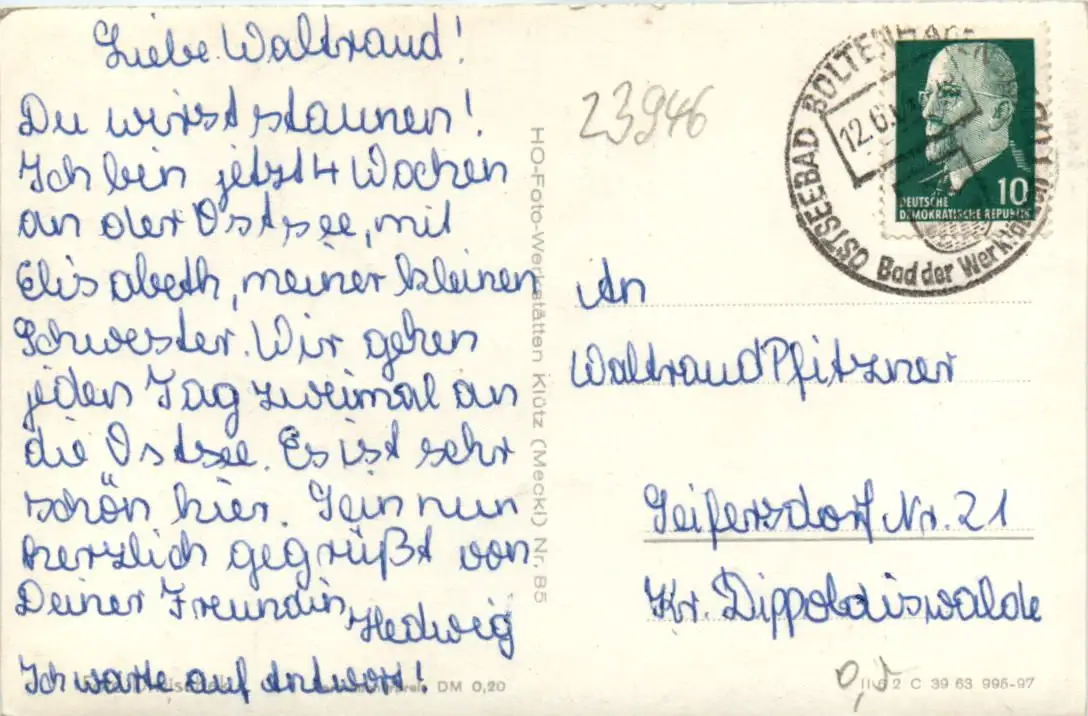 Liebe Waltraud!
Du wirst staunen!
Ich bin jetzt 4 Wochen
an der Ostsee, mit
Elisabeth, meiner kleinen
Schwester. Wir gehen
jeden Tag zweimal an
die Ostsee. Es ist sehr
schön hier. Sei nun
herzlich gegrüßt von
Deiner Freundin
Hedwig
Ich warte auf Antwort!
DM 0,20
HO-Foto-Werkstätten Klütz (Meckl) Nr. 85
23946
OSTSEEBAD BOLTENHAGEN
12.6.
Bad der Werktätigen
10
DEUTSCHE
DEMOKRATISCHE REPUBLIK
An
Waltraud Pfitzner
Seifersdorf Nr. 21
Kr. Dippoldiswalde
C 39 63 995-97